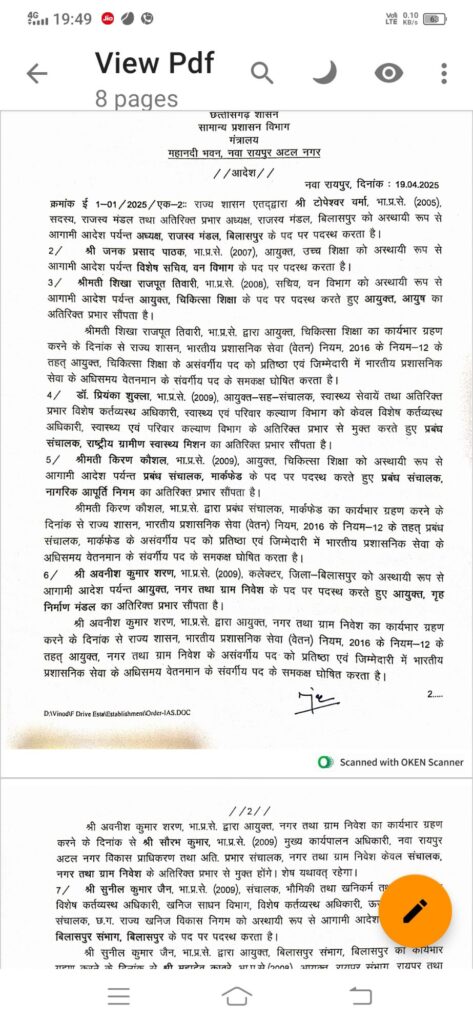 4G 19:49 Jio VoI) LTE 0.10 KB/s 63
View Pdf
8 pages
छत्तीसगढ़ शासन
सामान्य प्रशासन विभाग
मंत्रालय
महानदी भवन, नवा रायपुर अटल नगर
//आदेश//
नवा रायपुर, दिनांक : 19.04.2025
क्रमांक ई 1-01/2025/एक-2:: राज्य शासन एतद्द्वारा श्री टोपेश्वर वर्मा, भा.प्र.से. (2005),
सदस्य, राजस्व मंडल तथा अतिरिक्त प्रभार अध्यक्ष, राजस्व मंडल, बिलासपुर को अस्थायी रूप से
आगामी आदेश पर्यन्त अध्यक्ष, राजस्व मंडल, बिलासपुर के पद पर पदस्थ करता है।
2/ श्री जनक प्रसाद पाठक, भा.प्र.से. (2007), आयुक्त, उच्च शिक्षा को अस्थायी रूप से
आगामी आदेश पर्यन्त विशेष सचिव, वन विभाग के पद पर पदस्थ करता है।
3/ श्रीमती शिखा राजपूत तिवारी, भा.प्र.से. (2008), सचिव, वन विभाग को अस्थायी रूप से
आगामी आदेश पर्यन्त आयुक्त, चिकित्सा शिक्षा के पद पर पदस्थ करते हुए आयुक्त, आयुष का
अतिरिक्त प्रभार सौंपता है।
श्रीमती शिखा राजपूत तिवारी, भा.प्र.से. द्वारा आयुक्त, चिकित्सा शिक्षा का कार्यभार ग्रहण
करने के दिनांक से राज्य शासन, भारतीय प्रशासनिक सेवा (वेतन) नियम, 2016 के नियम-12 के
तहत् आयुक्त, चिकित्सा शिक्षा के असंवर्गीय पद को प्रतिष्ठा एवं जिम्मेदारी में भारतीय प्रशासनिक
सेवा के अधिसमय वेतनमान के संवर्गीय पद के समकक्ष घोषित करता है।
4/ डॉ. प्रियंका शुक्ला, भा.प्र.से. (2009), आयुक्त-सह-संचालक, स्वास्थ्य सेवायें तथा अतिरिक्त
प्रभार विशेष कर्तव्यस्थ अधिकारी, स्वास्थ्य एवं परिवार कल्याण विभाग को केवल विशेष कर्तव्यस्थ
अधिकारी, स्वास्थ्य एवं परिवार कल्याण विभाग के अतिरिक्त प्रभार से मुक्त करते हुए प्रबंध
संचालक, राष्ट्रीय ग्रामीण स्वास्थ्य मिशन का अतिरिक्त प्रभार सौंपता है।
5/ श्रीमती किरण कौशल, भा.प्र.से. (2009), आयुक्त, चिकित्सा शिक्षा को अस्थायी रूप से
आगामी आदेश पर्यन्त प्रबंध संचालक, मार्कफेड के पद पर पदस्थ करते हुए प्रबंध संचालक,
नागरिक आपूर्ति निगम का अतिरिक्त प्रभार सौंपता है।
श्रीमती किरण कौशल, भा.प्र.से. द्वारा प्रबंध संचालक, मार्कफेड का कार्यभार ग्रहण करने के
दिनांक से राज्य शासन, भारतीय प्रशासनिक सेवा (वेतन) नियम, 2016 के नियम-12 के तहत् प्रबंध
संचालक, मार्कफेड के असंवर्गीय पद को प्रतिष्ठा एवं जिम्मेदारी में भारतीय प्रशासनिक सेवा के
अधिसमय वेतनमान के संवर्गीय पद के समकक्ष घोषित करता है।
6/ श्री अवनीश कुमार शरण, भा.प्र.से. (2009), कलेक्टर, जिला-बिलासपुर को अस्थायी रूप से
आगामी आदेश पर्यन्त आयुक्त, नगर तथा ग्राम निवेश के पद पर पदस्थ करते हुए आयुक्त, गृह
निर्माण मंडल का अतिरिक्त प्रभार सौंपता है।
श्री अवनीश कुमार शरण, भा.प्र.से. द्वारा आयुक्त, नगर तथा ग्राम निवेश का कार्यभार ग्रहण
करने के दिनांक से राज्य शासन, भारतीय प्रशासनिक सेवा (वेतन) नियम, 2016 के नियम-12 के
तहत् आयुक्त, नगर तथा ग्राम निवेश के असंवर्गीय पद को प्रतिष्ठा एवं जिम्मेदारी में भारतीय
प्रशासनिक सेवा के अधिसमय वेतनमान के संवर्गीय पद के समकक्ष घोषित करता है।
2.....
D:\Vinod\F Drive Esta\Establishment\Order-IAS.DOC
Scanned with OKEN Scanner
//2//
श्री अवनीश कुमार शरण, भा.प्र.से. द्वारा आयुक्त, नगर तथा ग्राम निवेश का कार्यभार ग्रहण
करने के दिनांक से श्री सौरभ कुमार, भा.प्र.से. (2009) मुख्य कार्यपालन अधिकारी, नवा रायपुर
अटल नगर विकास प्राधिकरण तथा अति. प्रभार संचालक, नगर तथा ग्राम निवेश केवल संचालक,
नगर तथा ग्राम निवेश के अतिरिक्त प्रभार से मुक्त होंगे। शेष यथावत् रहेगा।
7/ श्री सुनील कुमार जैन, भा.प्र.से. (2009), संचालक, भौमिकी तथा खनिकर्म
विशेष कर्तव्यस्थ अधिकारी, खनिज साधन विभाग, विशेष कर्तव्यस्थ अधिकारी,
संचालक, छ.ग. राज्य खनिज विकास निगम को अस्थायी रूप से आगामी आदेश
बिलासपुर संभाग, बिलासपुर के पद पर पदस्थ करता है।
श्री सुनील कुमार जैन, भा.प्र.से. द्वारा आयुक्त, बिलासपुर संभाग, बिलासपुर का कार्यभार
ग्रहण करने के दिनांक से श्री महादेव कावरे, भा.प्र.से. (2008), आयुक्त, रायपुर संभाग, रायपुर तथा